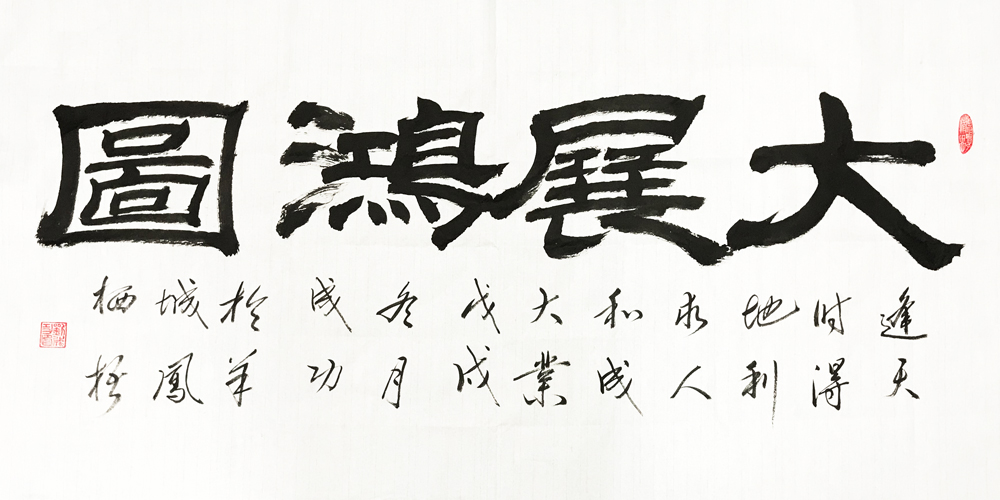 大展鴻圖
逢天
时得
地利
求人
和成
大業
戊戌
冬月
成功
於羊
城鳳
栖